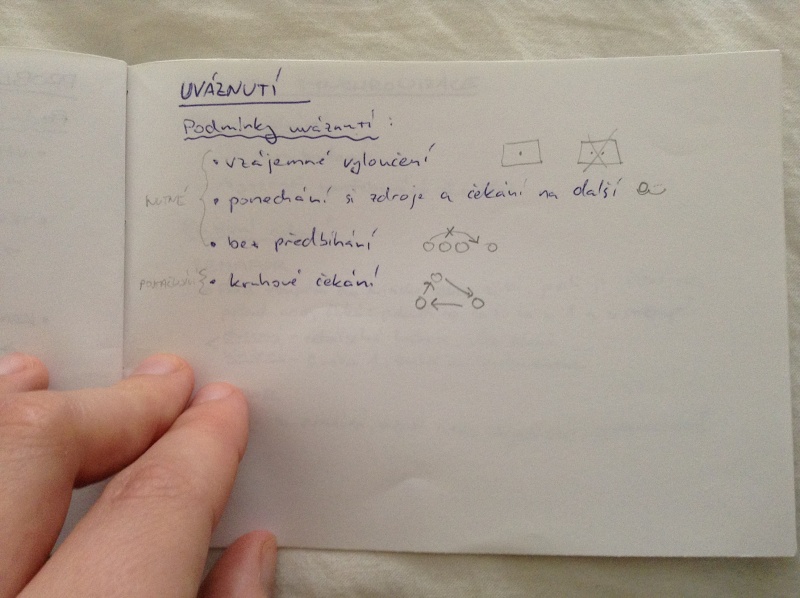 UVÁZNUTÍ
Podmínky uváznutí:
• vzájemné vyloučení
• ponechání si zdroje a čekání na další
NUTNÉ
• bez předbíhání
• kruhové čekání